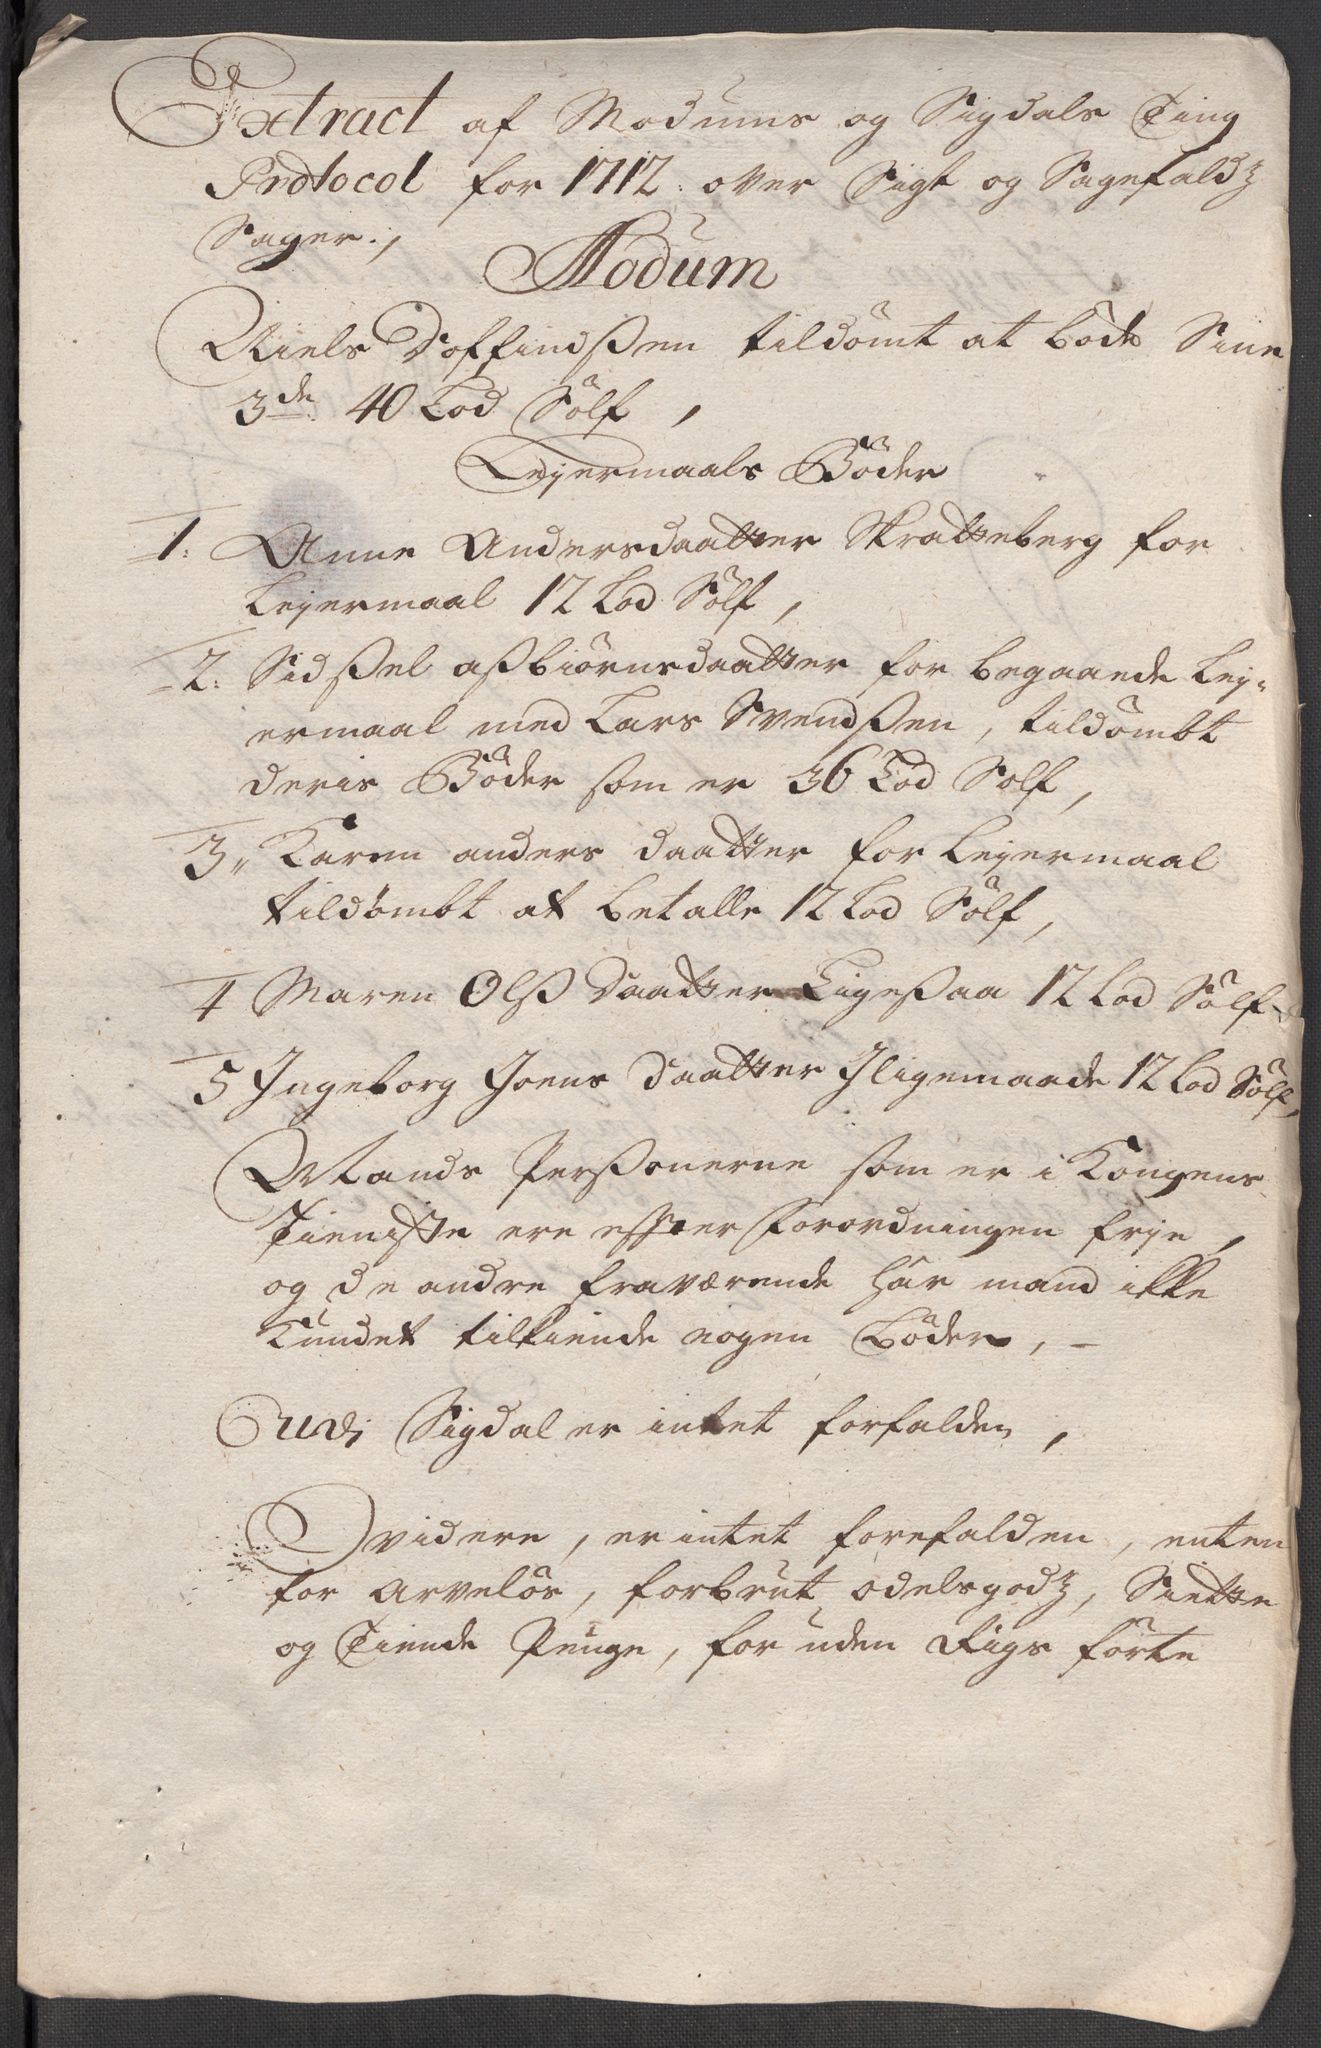 Extract af Modums og Sigdals Ting
Protocol for 1712. over Sigt og Sagefaldz
Sager.,
Modum
Niels Toffindßen tildömt at böde Sine
3de. 40 Lod Sölf,
Leyermaals Böder
1. Anne Andersdaatter Skratteberg for
Leyermaal 12 Lod Sölf,
2. Sidßel aßbiörnsdaatter for begaaede Ley-
ermaal med Lars Svendßen, tildömbt
deris Böder som er 36 Lod Sölf,
3,, Karen anders daatter for Leyermaal
tildömbt at betalle 12 Lod Sölf,
4 Maren Olß daatter Ligeßaa 12 Lod Sölf
5 Ingeborg Joens daatter Jligemaade 12 Lod Sölf,
Mands Perßonerne som er i Kongens
Tieniste ere efter Forordningen frye,
og de andre fraværende här mand ikke
Kundet tilkiende nogen Böder, -
Udj Sigdal er intet forfalden,
Ovidere, er intet forefalden, enten
for arvelös, forbrut odelsgodz, Siette
og Tiende Penge, for uden Rigs förte